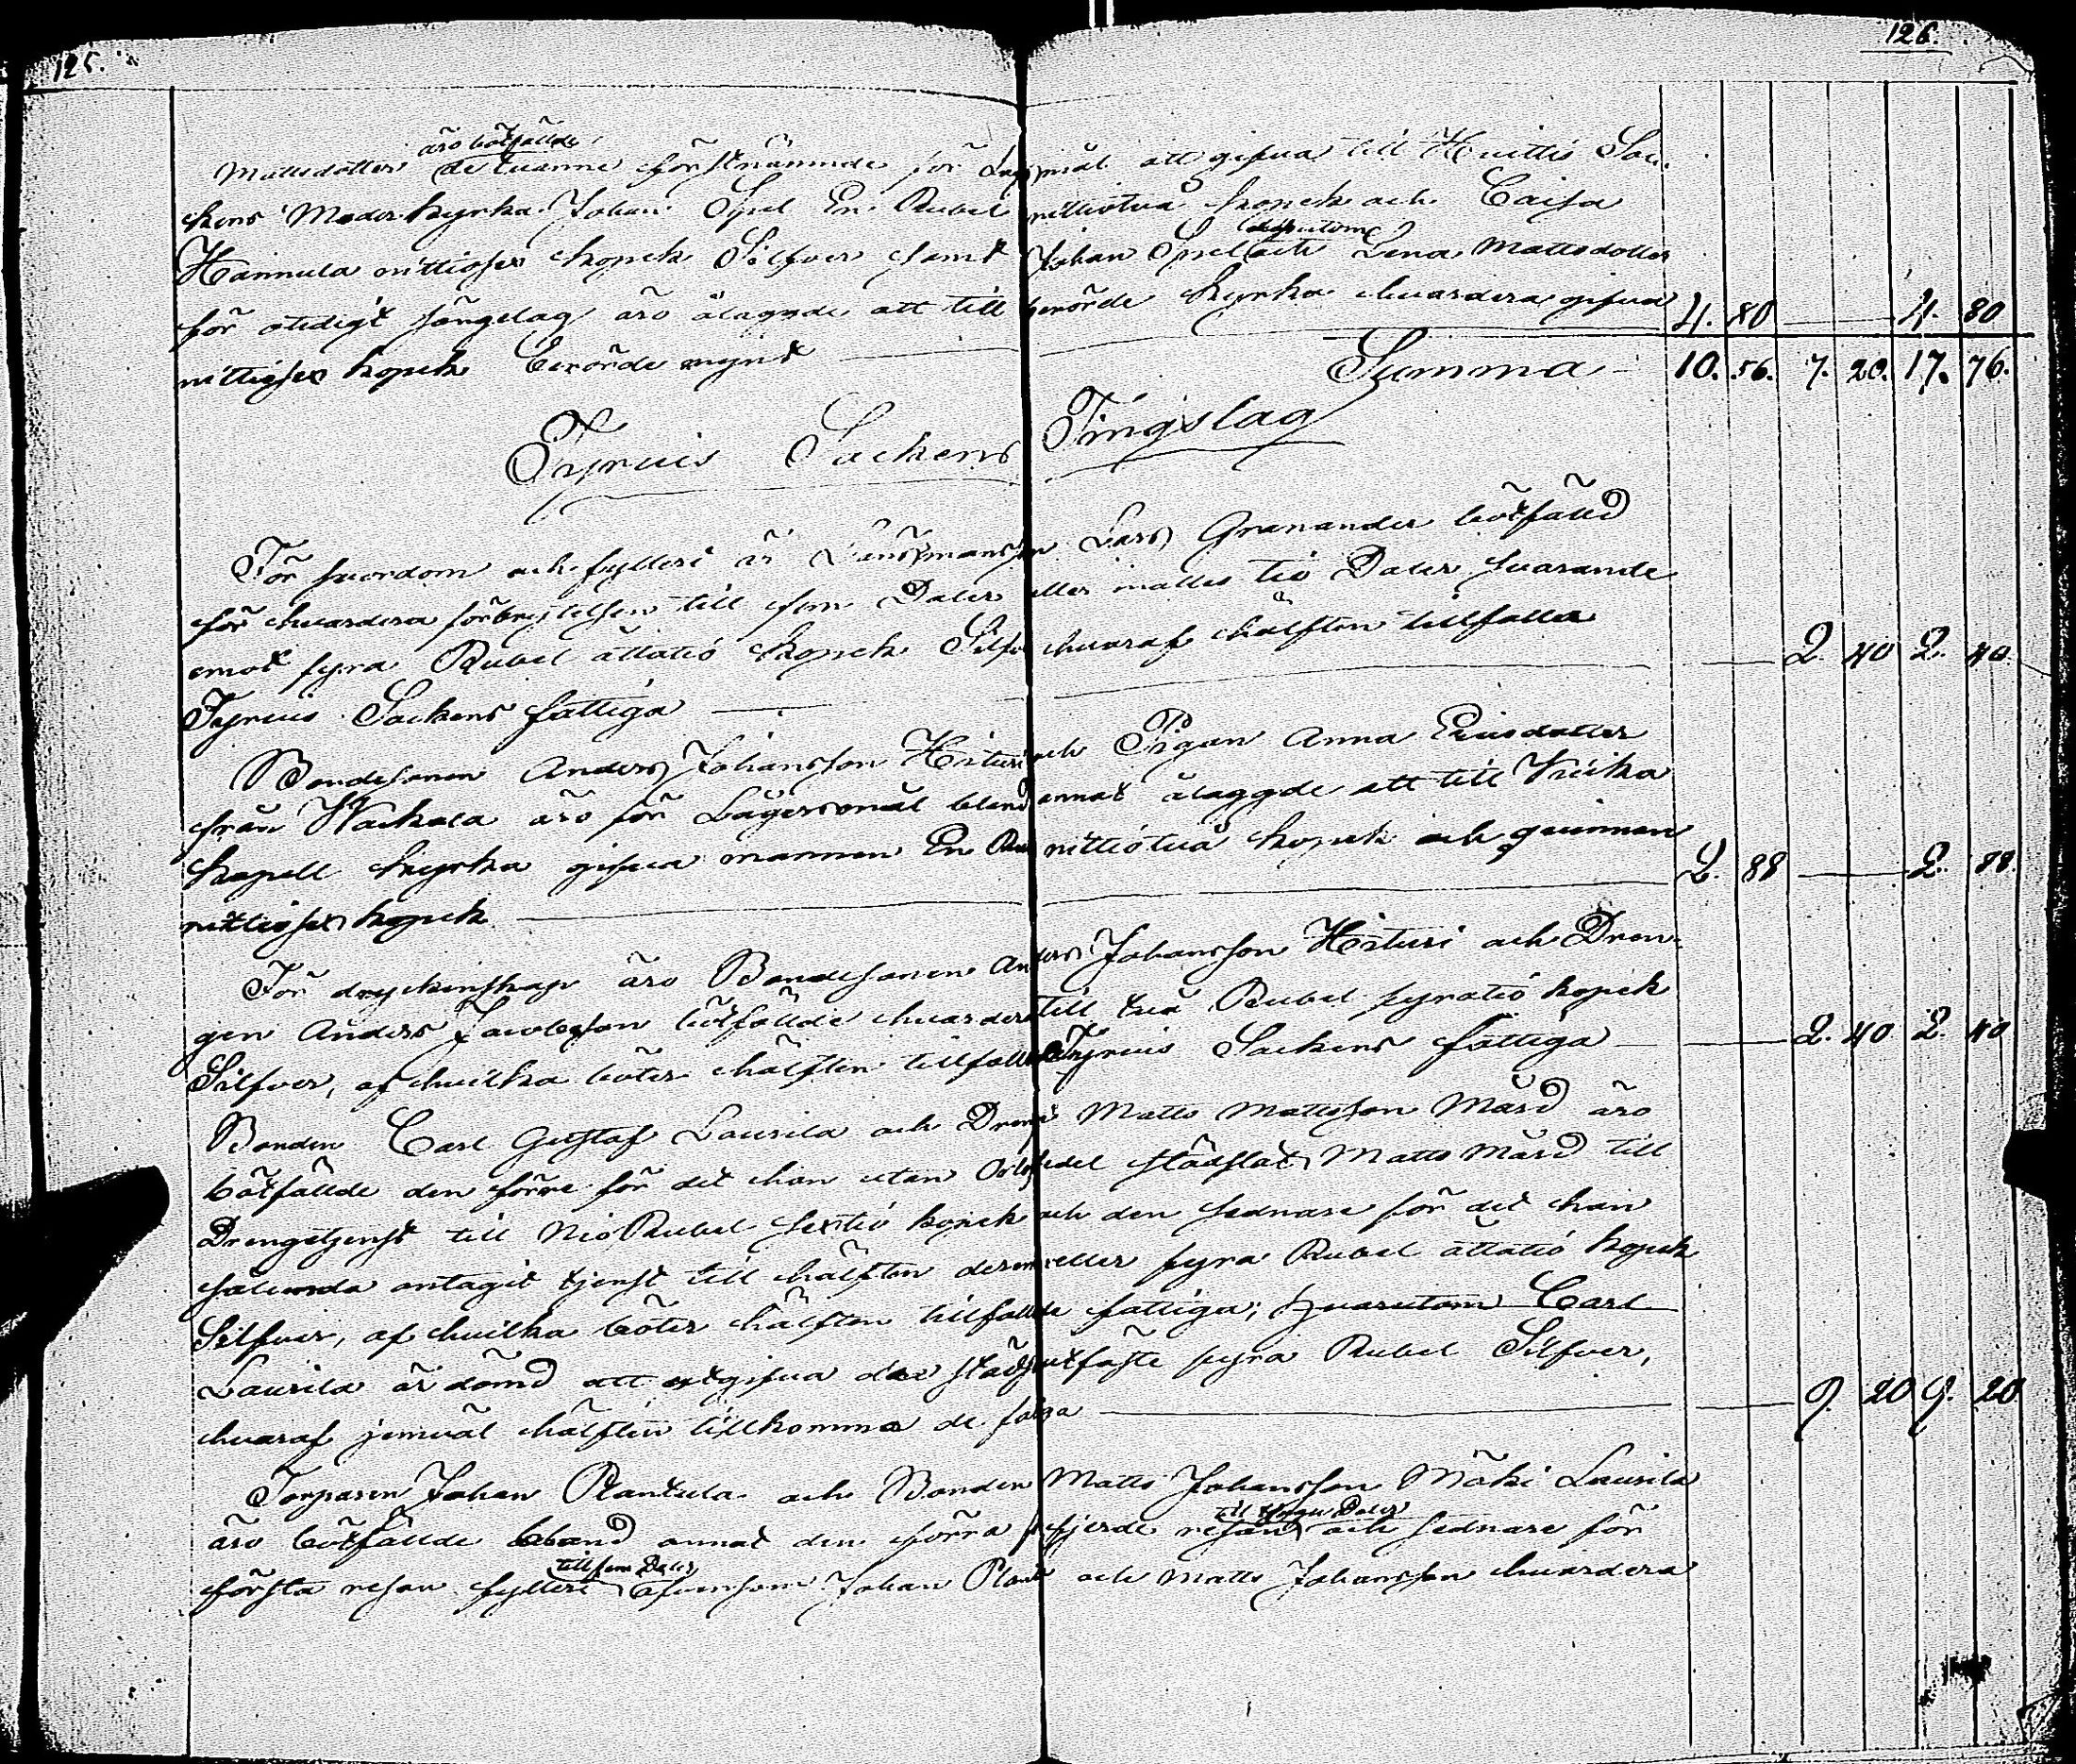 125.
126.
äro bötfällde
Mattsdotter de tvanne förstnämnde för Lägersmål att gifva till Huittis Soc-
kens Moderkyrka Johan Opel En Rubel nittiotvå kopek och Caisa
dessutom
Hannula nittiosex kopek Silfver samt Johan Opel och Lena Mattsdotter
för otidigt sängelag äro ålaggde att till berörde kyrka hvardera gifva 4. 80 4. 80
nittiosex kopek berörde mynt
Summa 10. 56. 7. 20. 17. 76.
Tyrvis Sockens Tingslag
För svordom och fylleri är Länsmannen Lars Granander bötfälld
för hvardera förbrytelsen till fem Daler eller inalles tio Daler svarande
emot fyra Rubel åttatio kopek Silfver hvaraf hälften tillfaller
Tyrvis Sockens fattiga 2. 40 2. 40.
Bondesonen Anders Johansson Hituri och Pigan Anna Ericsdotter
från Wackala äro för Lägersmål bland annat ålaggde att till Kiikka
kapell kyrka gifva mannen En Rubel nittiotvå kopek och qvinnan
nittiosex kopek 2. 88 2. 88.
För dryckenskap äro Bondesonen Anders Johansson Hituri och Dren-
gen Anders Jacobsson bötfällde hvardera till två Rubel fyratio kopek
Silfver, af hvilka böter hälften tillfaller Tyrvis Sockens fattiga 2. 40 2. 40
Bonden Carl Gustaf Laurila och Drengen Matts Mattsson Mård äro
bötfällde den förre för det han utan Orlofssedel städslat Matts Mård till
Drengetjenst till Nio Rubel sextio kopek och den sednare för det han
sålunda antagit tjenst till hälften deremot eller fyra Rubel åttatio kopek
Silfver, af hvilka böter hälften tillfaller de fattiga; hvarutom Carl
Laurila är dömd att utgifva det städjut fäste fyra Rubel Silfver,
hvaraf jemväl hälften tillkommer de fattiga 9. 20 9. 20
Torparen Johan Plantula och Bonden Matts Johansson Mäki Laurila
till tjugu Daler
äro bötfällde bland annat den förra för fjerde resan och sednare för
till fem Daler
första resan fylleri äfvensom Johan och Matts Johansson hvardera